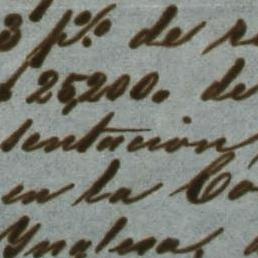 3 p% de
25,200. de
tentacion
en la Co
Ynglesa,